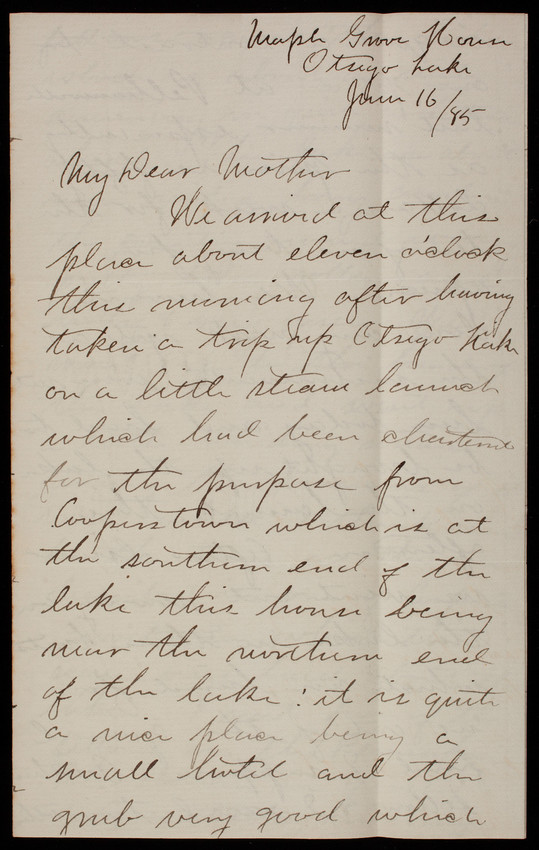 Maple Grove House
Otsego Lake
June 16/85
My Dear Mother
We arrived at this
place about eleven o'clock
this morning after having
taken a trip up Otsego Lake
on a little steam launch
which had been chartered
for the purpose from
Cooperstown which is at
the southern end of the
lake this house being
near the northern end
of the lake: it is quite
a nice place being a
small hotel and the
grub very good which